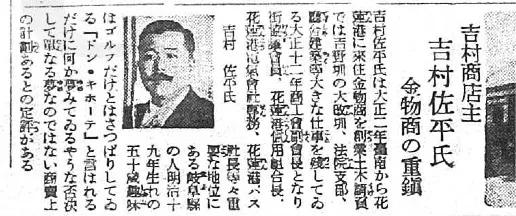 吉村商店主
吉村佐平氏
金物商の重鎭
吉村佐平氏は大正二年臺南から花
蓮港に來住金物商を創業土木請負
では吉野圳の大改圳、法院支部、
臨台建築等大きな仕事を殘してゐ
る大正十二年商工會副會長となり
街協議會員、花蓮港信用組合長、
花蓮港電氣會社專務、花蓮港バス
社長等々重
要な地位に
ある岐阜縣
の人明治十
九年生れの
五十歲趣味
はゴルフだけとはさつぱりしてゐ
る「ドン・キホーテ」と言はれる
だけに何か夢みてゐるやうな否決
して單なる夢なのではない商賣上
の計劃あるとの定評がある
吉村 佐平氏